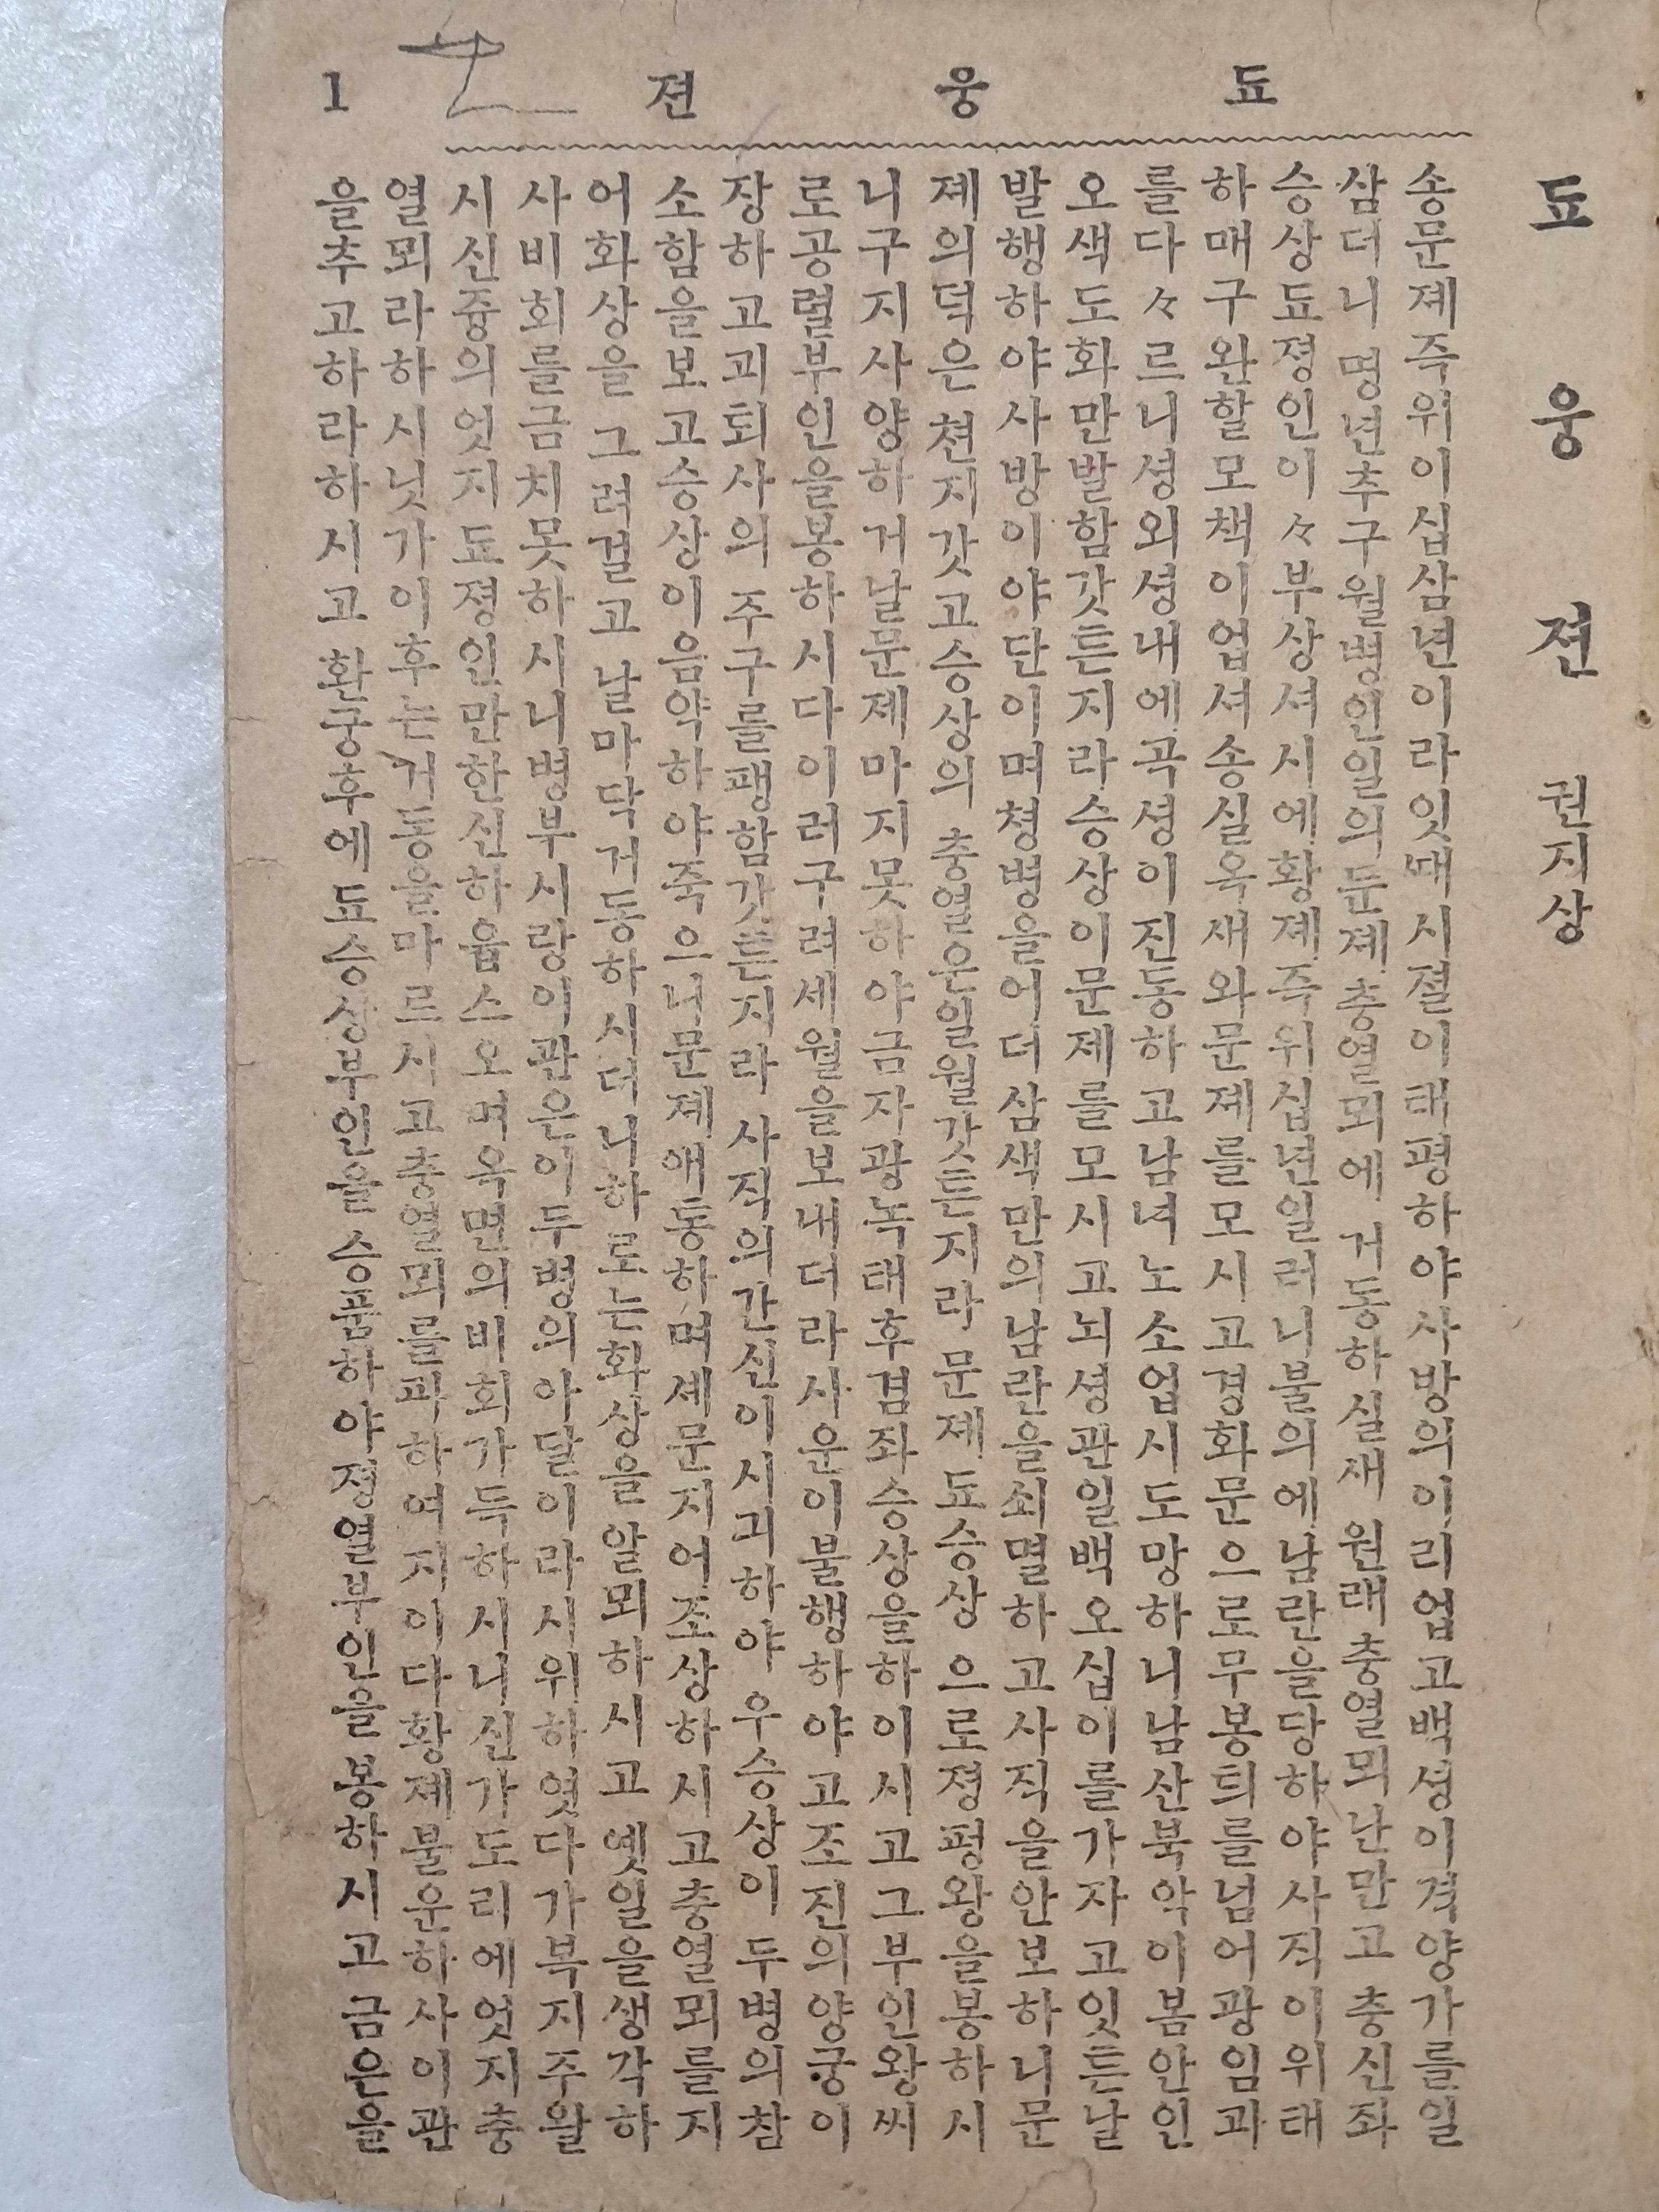 됴웅젼 1
됴웅젼 권지상
송문졔즉위이십삼년이라잇때시졀이태평하야사방의이리업고백셩이격양가를일
삼더니 명년추구월병인일의문졔충열뫼에 거동하실새 원래충열뫼난만고 충신좌
승상됴졍인이々부상셔시에황졔즉위십년일러니불의에남란을당하야사직이위태
하매구완할모책이업셔송실옥새와문졔를모시고경화문으로무봉틔를넘어광임과
를다々르니셩외셩내에곡셩이진동하고남녀노소업시도망하니남산북악이봄안인
오색도화만발함갓튼지라승상이문졔를모시고뇌셩관일백오십이를가자고잇든날
발행하야사방이야단이며쳥병을어더삼색만의남란을쇠멸하고사직을안보하니문
졔의덕은쳔지갓고승상의 충열은일월갓튼지라 문졔 됴승상 으로졍평왕을봉하시
니구지사양하거날문졔마지못하야금자광녹태후겸좌승상을하이시고그부인왕씨
로공렬부인을봉하시다이러구려세월을보내더라시운이불행하야고조진의양궁이
장하고괴퇴사의 주구를팽함갓튼지라 사직의간신이시긔하야 우승상이 두병의참
소함을보고승상이음약하야죽으니문졔애통하며졔문지어조상하시고충열뫼를지
어화상을 그려걸고 날마닥거동하시더니하로는화상을알뫼하시고 옛일을생각하
사비회를금치못하시니병부시랑이관은이두병의아달이라시위하엿다가복지주왈
시신즁의엇지됴졍인만한신하읍스오며옥면의비회가득하시니신가도리에엇지충
열뫼라하시닛가이후는거동을마르시고충열뫼를파하여지이다황졔불윤하사이관
을추고하라하시고 환궁후에됴승상부인을승품하야졍열부인을봉하시고금은을